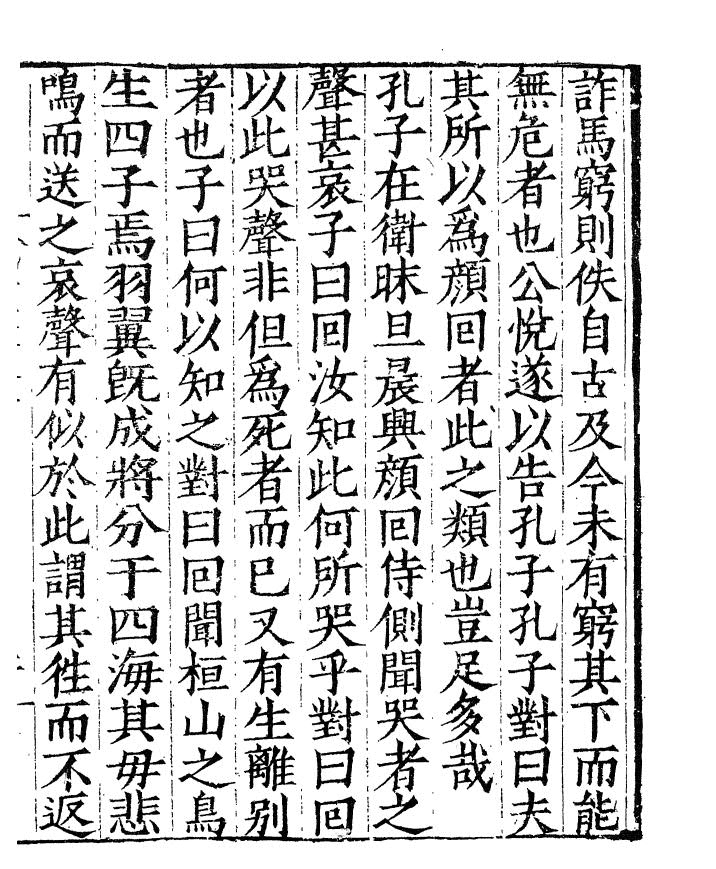 詐馬窮則佚自古及今未有窮其下而能
無危者也公悅遂以告孔子孔子對曰夫
其所以爲顔回者此之類也豈足多哉
孔子在衛昧旦晨興顔回侍側聞哭者之
聲甚哀子曰回汝知此何所哭乎對曰回
以此哭聲非但爲死者而已又有生離别
者也子曰何以知之對曰回聞桓山之鳥
生四子焉羽翼旣成將分于四海其母悲
鳴而送之哀聲有似於此謂其徃而不返